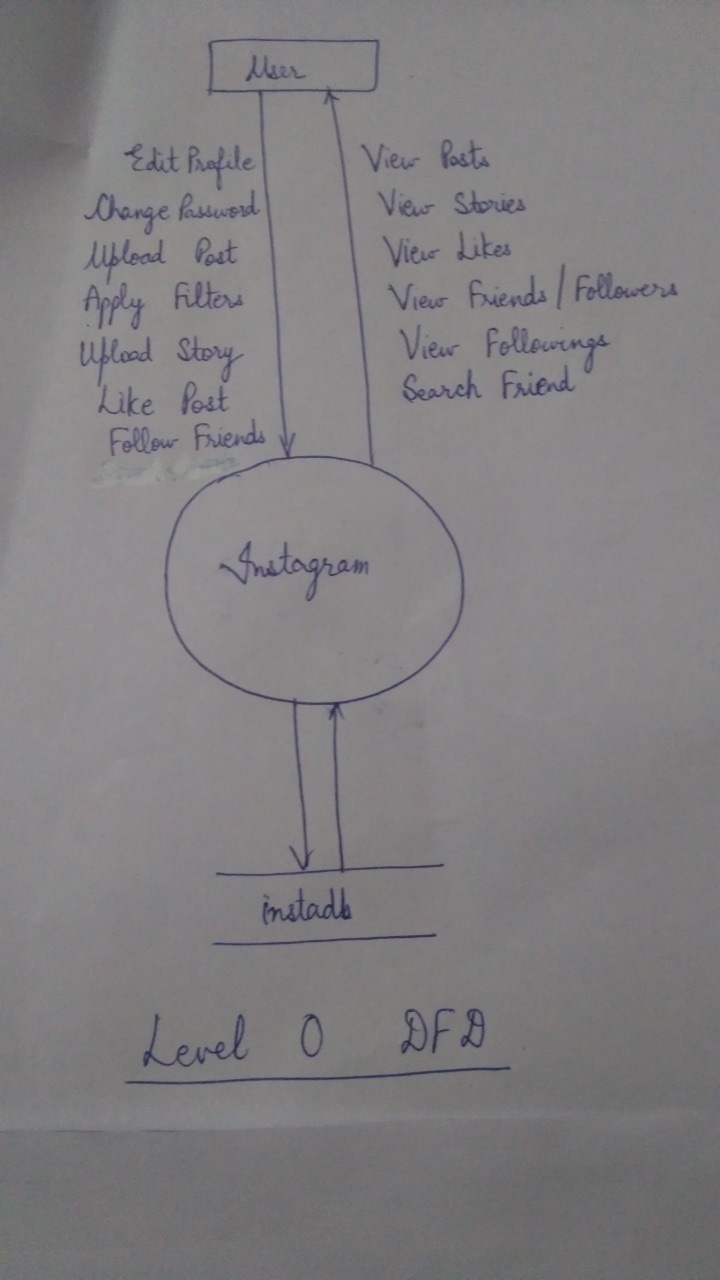 User
Edit Profile
Change Password
Upload Post
Apply Filters
Upload Story
Like Post
Follow Friends
View Posts
View Stories
View Likes
View Friends / Followers
View Followings
Search Friend
Instagram
instadb
Level 0 DFD